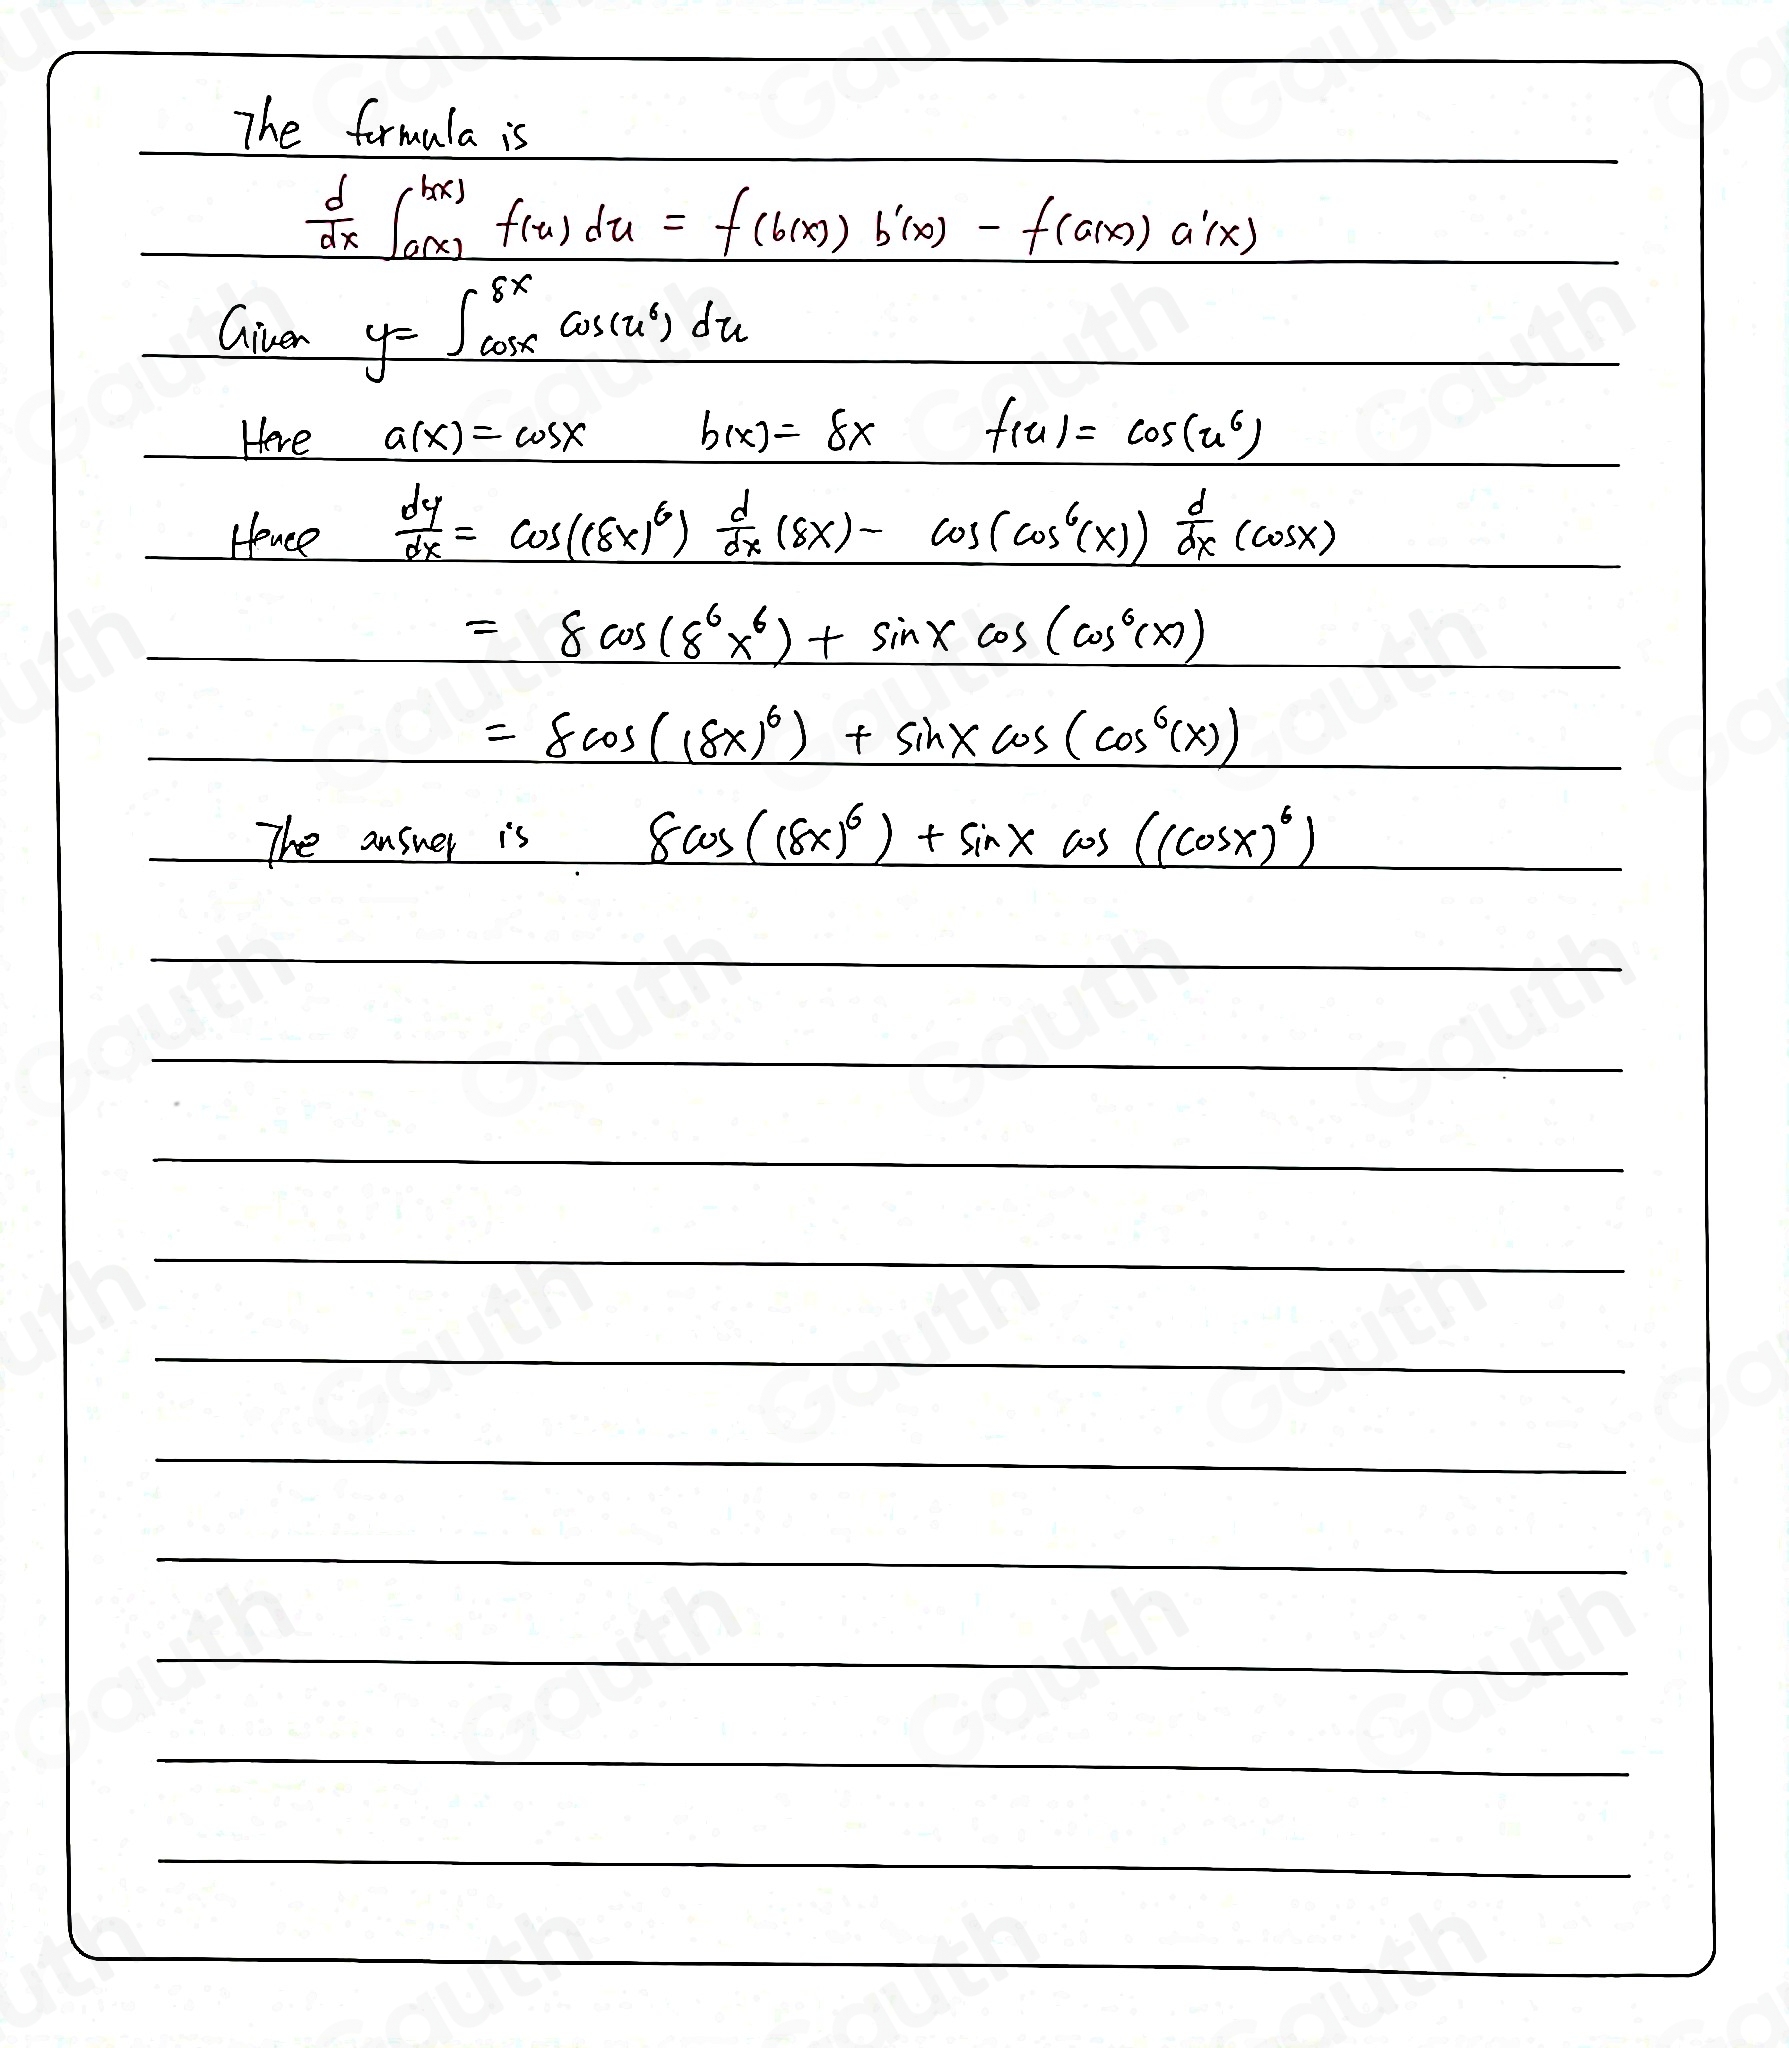 The formula is
d/dx ∫_{a(x)}^{b(x)} f(u) du = f(b(x)) b'(x) - f(a(x)) a'(x)
Given y = ∫_{cosx}^{8x} cos(u⁶) du
Here a(x) = cosx b(x) = 8x f(u) = cos(u⁶)
Hence dy/dx = cos((8x)⁶) d/dx (8x) - cos(cos⁶(x)) d/dx (cosx)
= 8 cos(8⁶x⁶) + sinx cos(cos⁶(x))
= 8cos((8x)⁶) + sinx cos(cos⁶(x))
The answer is 8cos((8x)⁶) + sinx cos((cosx)⁶)
Gauth